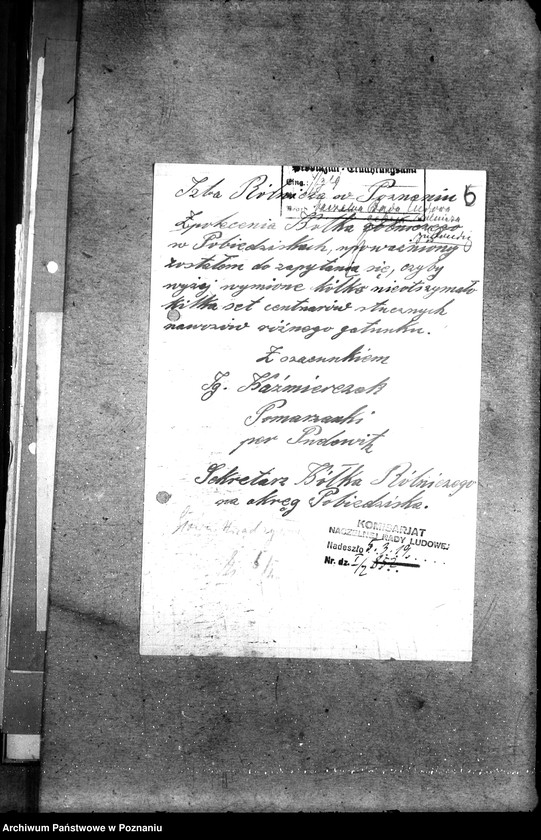 Eing.
6
Izba Rólnicza w Poznaniu
Zpolecenia Kółka rólniczego
w Pobiedziskach, upoważniony
zostałem do zapytania się, czyby
wyżej wymione kółko nieotrzymało
kilka set centnarów stucznych
nawozów różnego gatunku.
Z szacunkiem
Ig. Kaźmierczak
Pomarzanki
per Pudewitz
Sekretarz Kółka Rólniczego
na okręg Pobiedziska.
KOMISARJAT
NACZELNEJ RADY LUDOWEJ
Nadeszło 5.3.19.
Nr. dz.
Archiwum Państwowe w Poznaniu